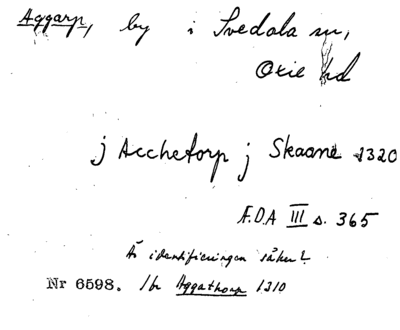 Aggarp, by i Svedala sn,
Oxie hd
j Acchetorp j Skaane 1320
Æ.D.A III s. 365
Är identifieringen säker?
Nr 6598. Jbr Aggathorp 1310